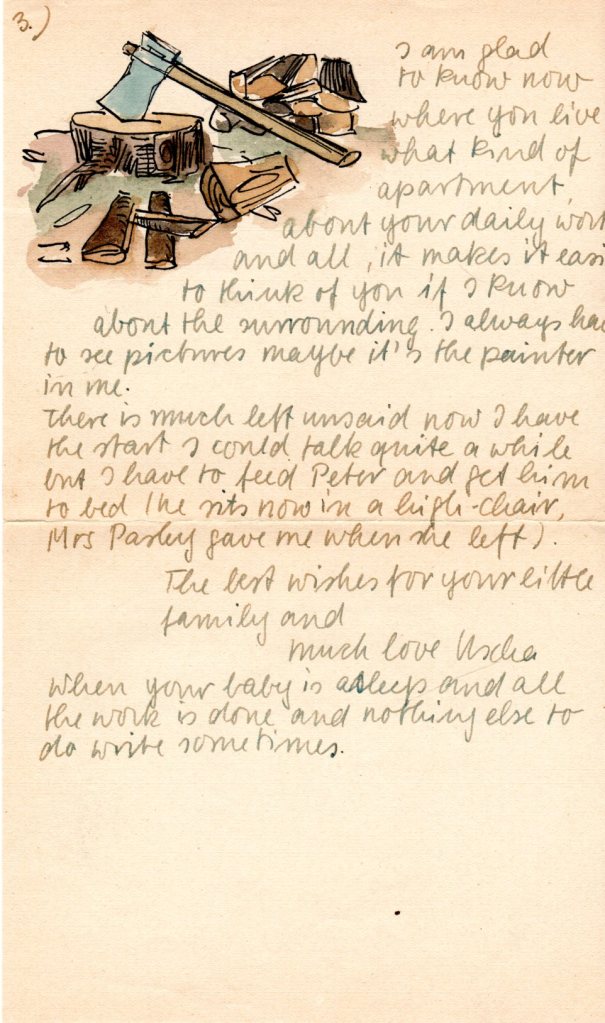 3.)
I am glad
to know now
where you live
what kind of
apartment,
about your daily work
and all, it makes it easi
to think of you if I know
about the surrounding. I always hav
to see pictures maybe it's the painter
in me.
There is much left unsaid now I have
the start I could talk quite a while
but I have to feed Peter and get him
to bed (he sits now in a high-chair,
Mrs gave me when she left).
The best wishes for your little
family and
much love Uscha
when your baby is asleep and all
the work is done and nothing else to
do write sometimes.